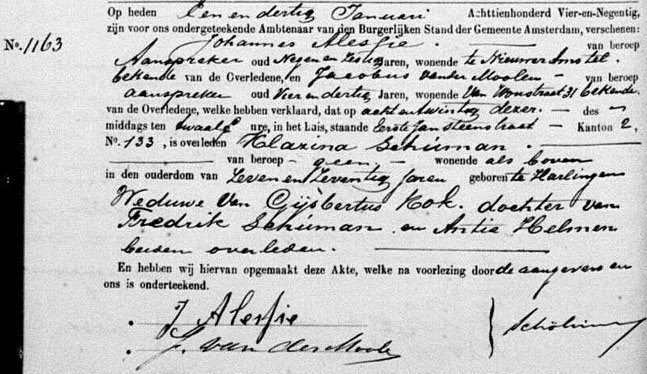 Op heden Een en dertig Januari Achttienhonderd Vier-en-Negentig,
zijn voor ons ondergeteekende Ambtenaar van den Burgerlijken Stand der Gemeente Amsterdam, verschenen:
No. 1163
Johannes Alesjie. van beroep
Aanspreker oud Negen en Zestig Jaren, wonende te Nieuwer Amstel.
bekende van de Overledene, en Jacobus van der Moolen van beroep
aanspreker oud Vier en dertig Jaren, wonende Van 31 bekende
van de Overledene, welke hebben verklaard, dat op acht en twintig dezer. des
middags ten twaalf ure, in het huis, staande Eerste Jan Steenstraat Kanton 2,
No. 133, is overleden Klazina Schuman.
van beroep geen wonende als boven
in den ouderdom van Zeven en Zeventig Jaren geboren te Harlingen
Weduwe van Gijsbertus Kok. dochter van
Fredrik Schuman en Antie Helmen
beiden overleden.
En hebben wij hiervan opgemaakt deze Akte, welke na voorlezing door de aangevers en
ons is onderteekend.
J Alesjie
J. van der Moolen